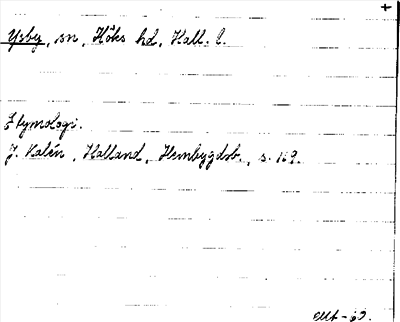 +
Ysby, sn, Höks hd, Hall. l.
Etymologi.
J. Kalén, Halland, Hembygdsb., s. 169.